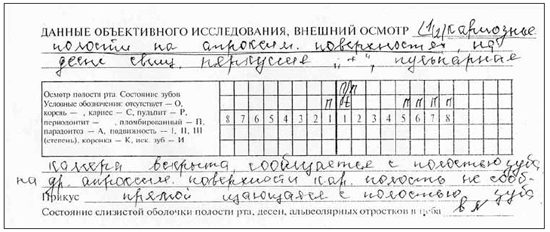 ДАННЫЕ ОБЪЕКТИВНОГО ИССЛЕДОВАНИЯ, ВНЕШНИЙ ОСМОТР (1/2) кариозные
полости на апроксим. поверхностях, на
десне свищ, перкуссия „+“, пульпарная
Осмотр полости рта. Состояние зубов
Условные обозначения: отсутствует – О,
корень – , кариес – С, пульпит – Р,
периодонтит – , пломбированный – П,
парадонтоз – А, подвижность – I, II, III
(степень), коронка – К, иск. зуб – И
П П П П П
8 7 6 5 4 3 2 1 1 2 3 4 5 6 7 8
камера вскрыта, сообщается с полостью зуба
на др. апроксим. поверхности кар. полость не сооб-
Прикус прямой щающаяся с полостью зуба
Состояние слизистой оболочки полости рта, десен, альвеолярных отростков и неба